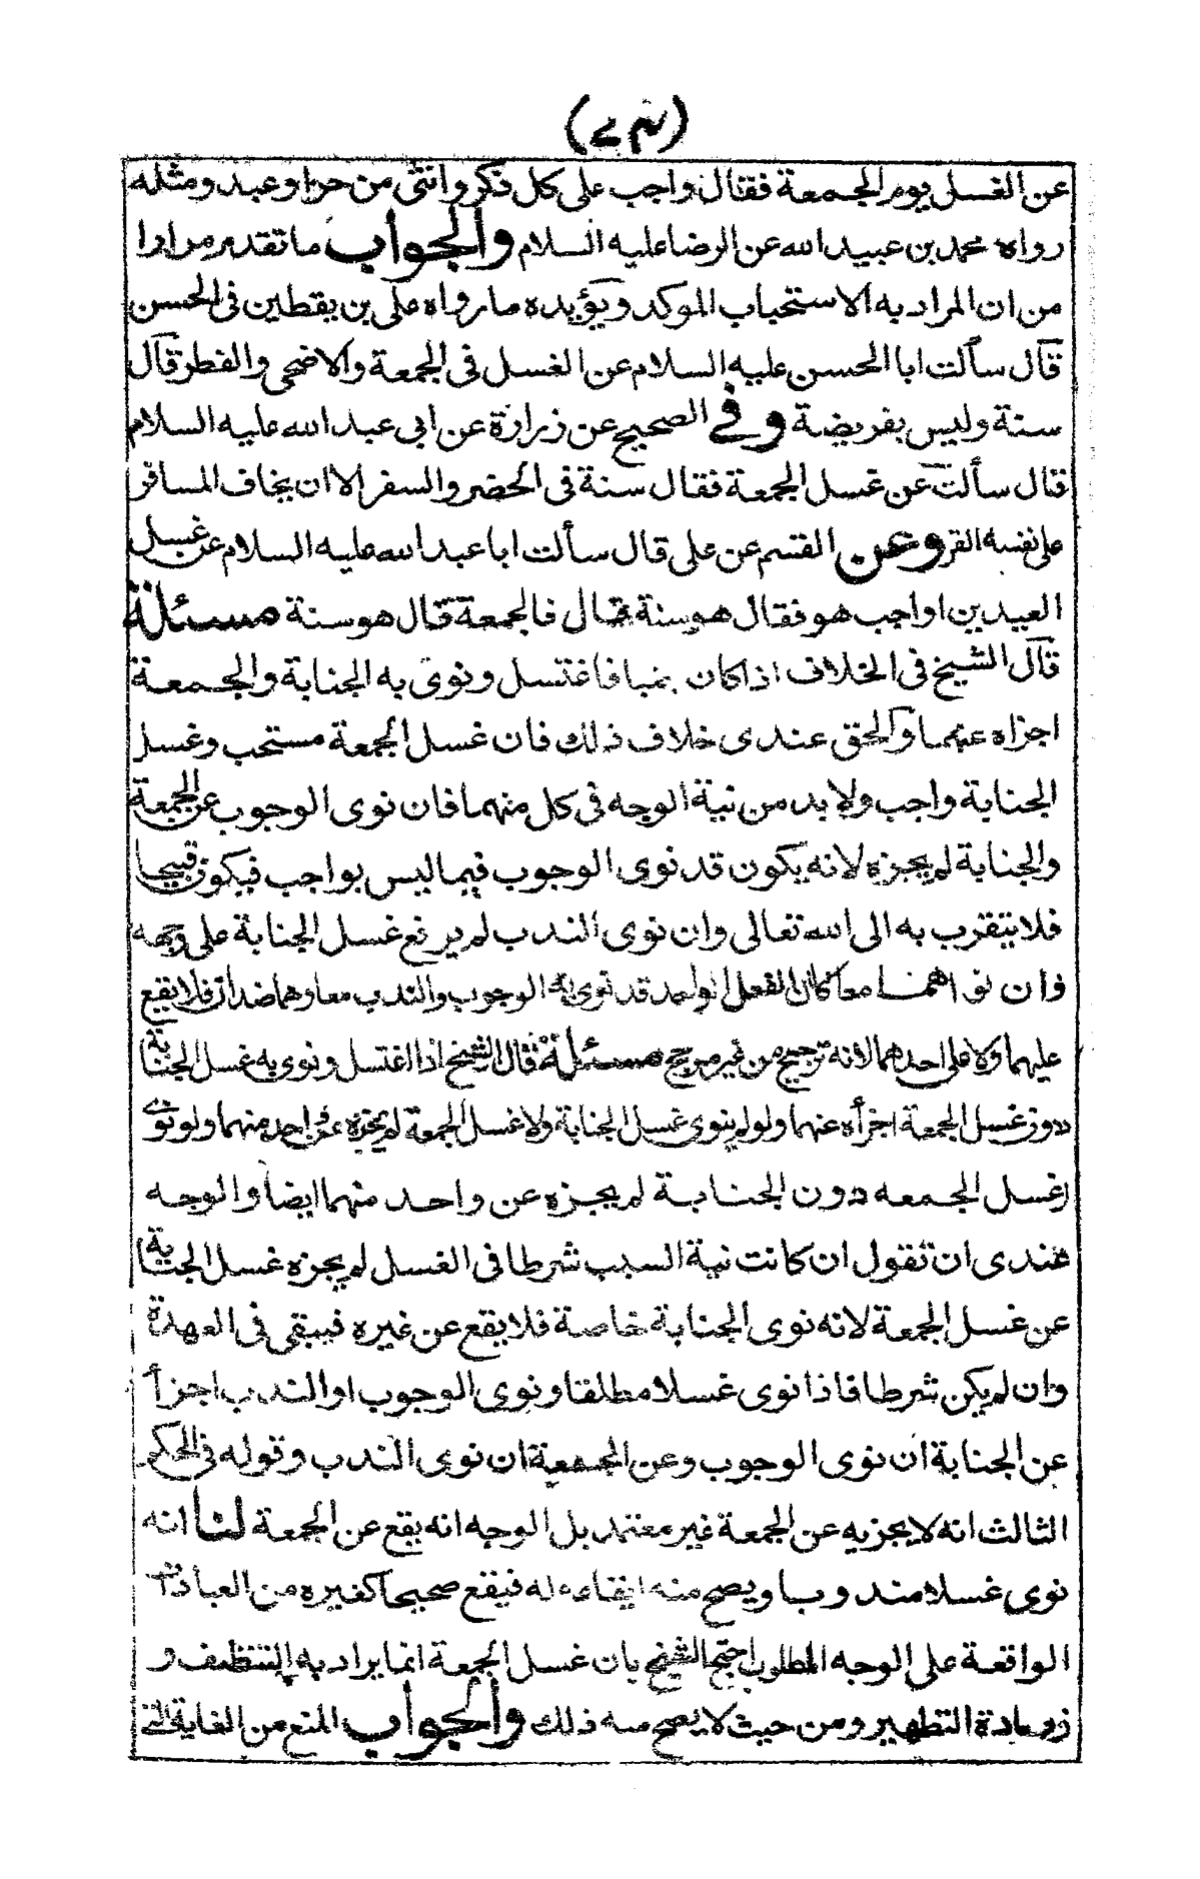 عن الغسل يوم الجمعة فقال واجب على كل ذكر وانثى من حر او عبد ومثله
رواه محمد بن عبيد الله عن الرضا عليه السلام والجواب ما تقدم مرارا
من ان المراد به الاستحباب الموكد ويؤيده ما رواه على بن يقطين فى الحسن
قال سألت ابا الحسن عليه السلام عن الغسل فى الجمعة والاضحى والفطر قال
سنة وليس بفريضة وفى الصحيح عن زرارة عن ابى عبد الله عليه السلام
قال سألت عن غسل الجمعة فقال سنة فى الحضر والسفر الا ان يخاف المسافر
على نفسه القر وعن القسم عن على قال سألت ابا عبد الله عليه السلام عن غسل
العيدين اواجب هو فقال هو سنة قال فالجمعة قال هو سنة مسئلة
قال الشيخ فى الخلاف اذا كان جنبا فاغتسل ونوى به الجنابة والجمعة
اجزاه عنهما والحق عندى خلاف ذلك فان غسل الجمعة مستحب وغسل
الجنابة واجب ولا بد من نية الوجه فى كل منهما فان نوى الوجوب عن الجمعة
والجنابة لم يجزه لانه يكون قد نوى الوجوب فيما ليس بواجب فيكون قبيحا
فلا يتقرب به الى الله تعالى وان نوى الندب لم يرفع غسل الجنابة على وجهه
وان نواهما معا كان الفعل الواحد قد نوى به الوجوب والندب معا وهما ضدان فلا يقع
عليهما ولا على احدهما لانه ترجيح من غير مرجح مسئلة قال الشيخ اذا اغتسل ونوى به غسل الجنابة
دون غسل الجمعة اجزأه عنهما ولو لم ينوى غسل الجنابة ولا غسل الجمعة لم يجزه عن احد منهما ولو نوى
غسل الجمعه دون الجنابة لم يجزه عن واحد منهما ايضا والوجه
عندى ان تقول ان كانت نية السبب شرطا فى الغسل لم يجزه غسل الجنابة
عن غسل الجمعة لانه نوى الجنابة خاصة فلا يقع عن غيره فيبقى فى العهدة
وان لم يكن شرطا فاذا نوى غسلا مطلقا ونوى الوجوب او الندب اجزأ
عن الجنابة ان نوى الوجوب وعن الجمعة ان نوى الندب وقوله فى الحكم
الثالث انه لا يجزيه عن الجمعة غير معتمد بل الوجه انه يقع عن الجمعة لنا انه
نوى غسلا مندوبا ويصح منه ايقاعه له فيقع صحيحا كغيره من العبادات
الواقعة على الوجه المطلوب احتج الشيخ بان غسل الجمعة انما يراد به التنظيف و
زيادة التطهير ومن حيث لا يصح منه ذلك والجواب المنع من الغاية التى